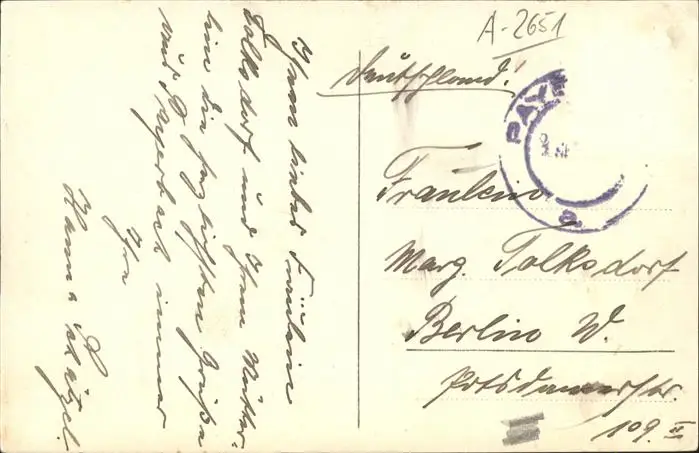 A-2651
Deutschland!
PAYE
Fräulein
Marg. Tolksdorf
Berlin W.
Potsdamerstr.
109. II
Ihnen liebes Fräulein
Tolksdorf und Ihrer Mutter
die herzlichsten Grüße
und
immer
Ihr
Hanns